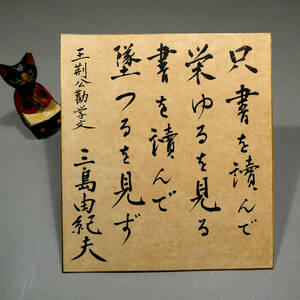 只書を讀んで
栄ゆるを見る
書を讀んで
墜つるを見ず
王荊公勸学文
三島由紀夫